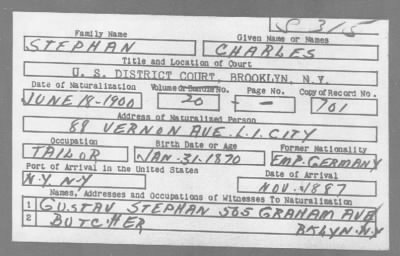 S 315
Family Name Given Name or Names
STEPHAN CHARLES
Title and Location of Court
U. S. DISTRICT COURT, BROOKLYN, N.Y.
Date of Naturalization Volume or Bundle No. Page No. Copy of Record No.
JUNE 18-1900 20 - 701
Address of Naturalized Person
88 VERNON AVE. L.I. CITY
Occupation Birth Date or Age Former Nationality
TAILOR JAN. 31. 1870 EMP. GERMANY
Port of Arrival in the United States Date of Arrival
N.Y. N.Y NOV. 1887
Names, Addresses and Occupations of Witnesses To Naturalization
1 GUSTAV STEPHAN 565 GRAHAM AVE
2 BUTCHER BKLYN. N.Y